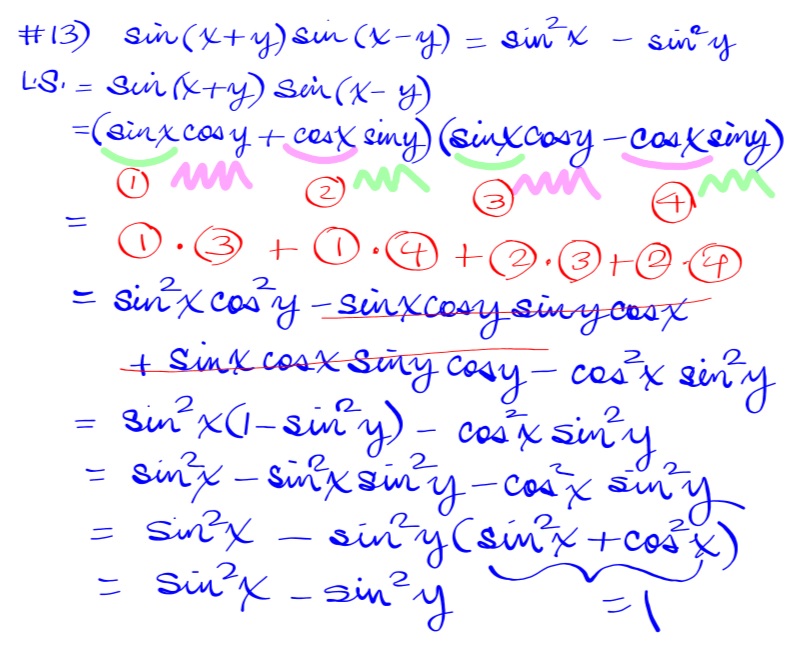 #13) sin(x+y)sin(x-y) = sin²x - sin²y
L.S. = sin(x+y) sin(x-y)
=(sinxcosy + cosx siny)(sinxcosy - cosxsiny)
① ② ③ ④
=
①·③ + ①·④ + ②·③ + ②·④
= sin²x cos²y - sinxcosy sinycosx
+ sinx cosx siny cosy - cos²x sin²y
= sin²x(1-sin²y) - cos²x sin²y
= sin²x - sin²x sin²y - cos²x sin²y
= sin²x - sin²y (sin²x + cos²x)
= sin²x - sin²y = 1